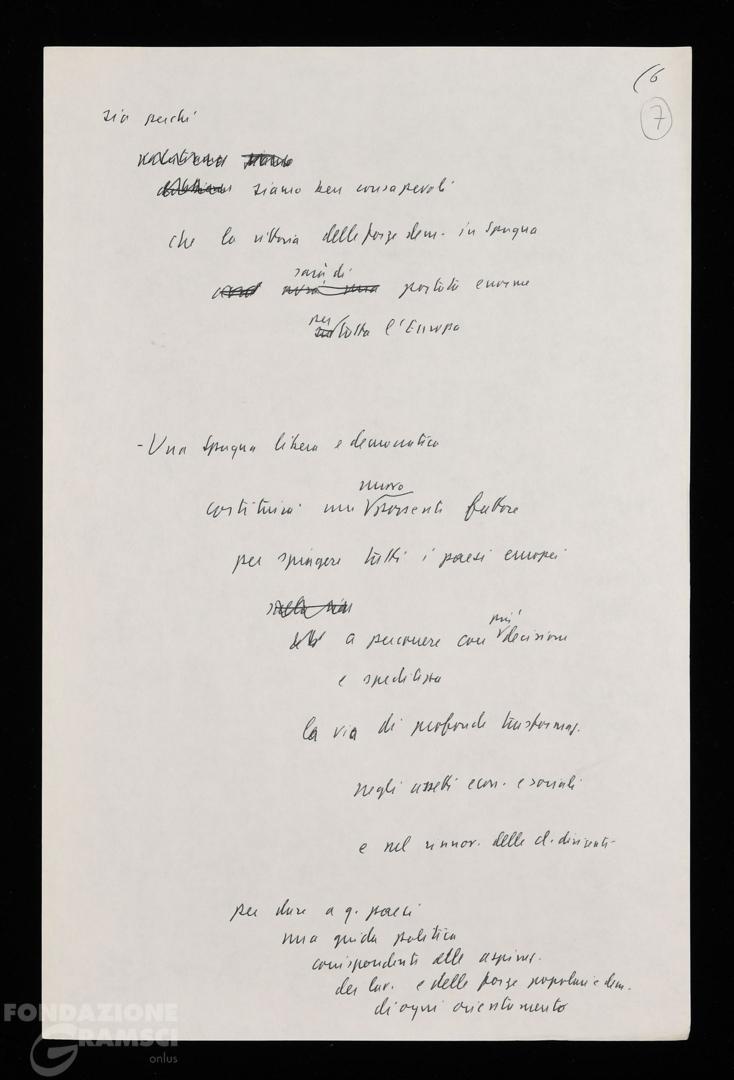 (6
7
sia perché
siamo ben consapevoli
che la vittoria delle forze dem. in Spagna
sarà di
portata enorme
per
tutta l'Europa
- Una Spagna libera e democratica
nuovo
costituirà un potente fattore
per spingere tutti i paesi europei
a percorrere con più decisione
e speditezza
la via di profonde trasformaz.
negli assetti econ. e sociali
e nel rinnov. delle cl. dirigenti -
per dare a q. paesi
una guida politica
corrispondente alle aspiraz.
dei lav. e delle forze popolari e dem.
di ogni orientamento
FONDAZIONE
GRAMSCI
onlus